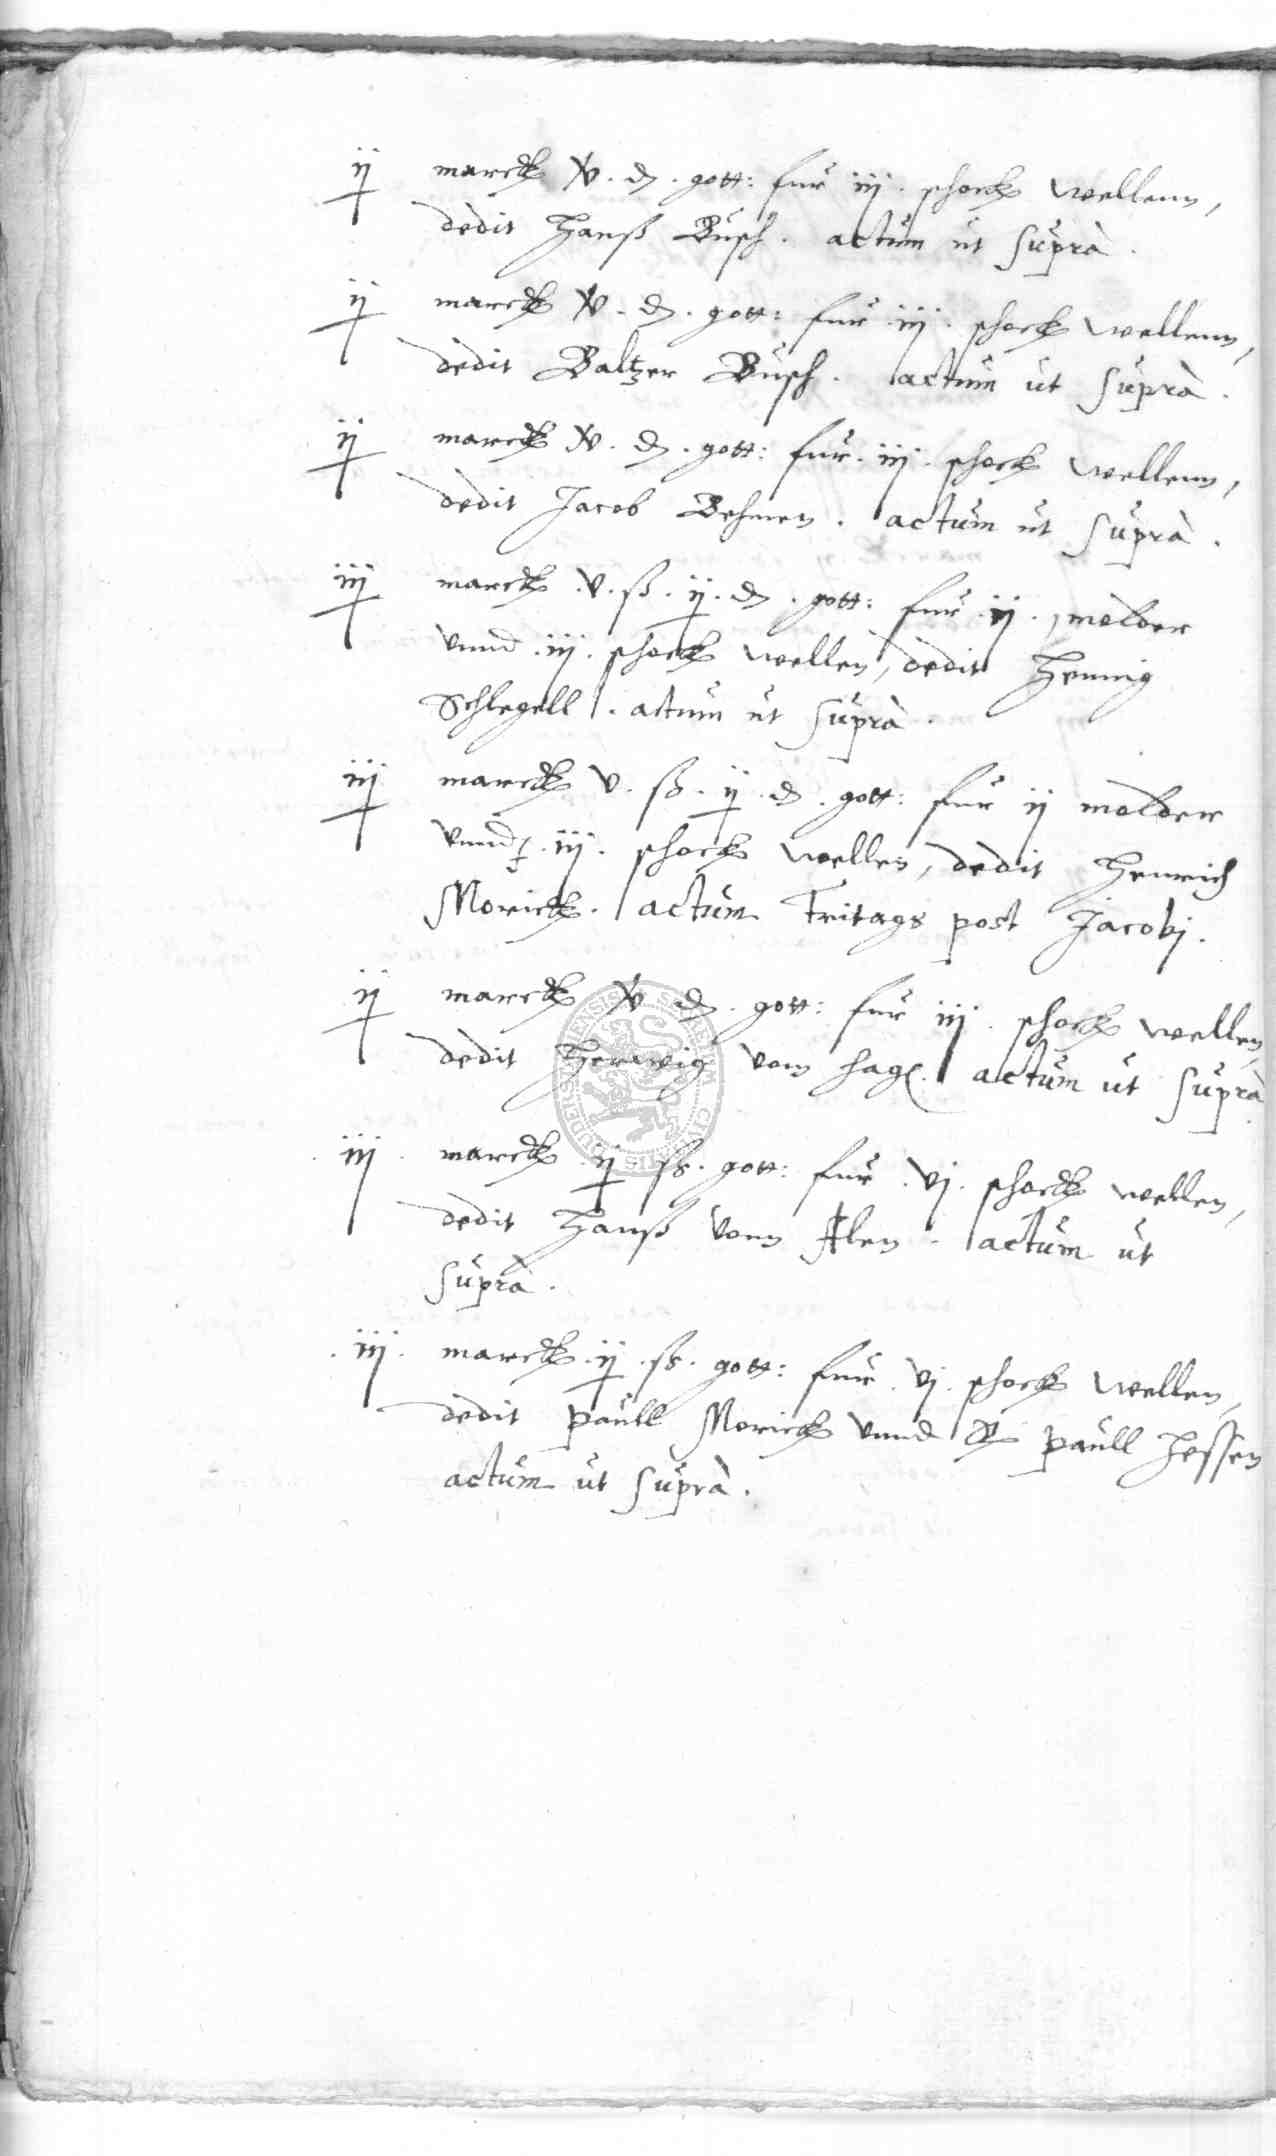 ij marck xv. ₰. gott: fur iij. schock wellenn,
dedit Hanß Busch. actum ut supra.
ij marck xv. ₰. gott: fur iij. schock wellenn,
dedit Baltzer Busch. actum ut supra.
ij marck xv. ₰. gott: fur. iij. schock wellenn,
dedit Jacob Behmen. actum ut supra.
iij marck .v. ß. ij. ₰. gott: fur .ij. molder
vnnd .iij. schock wellen, dedit Hennig
Schlegell. actum ut supra.
iij marck v. ß. ij ₰. gott: fur ij molder
vnnd .iij. schock wellen, dedit Henrich
Morick. actum Fritags post Jacobj.
ij marck xv ₰. gott: fur iij. schock wellen,
dedit Herwig vom Hag. actum ut supra
.iij. marck .ij ß. gott: fur .vj. schock wellen,
dedit Hanß vonn Alen. actum ut
supra.
.iij. marck .ij .ß. gott: fur .vj. schock wellen,
dedit paull Morick vnnd paull Hessen
actum ut supra.
SIGILLUM CIVITATIS DUDERSTADENSIS